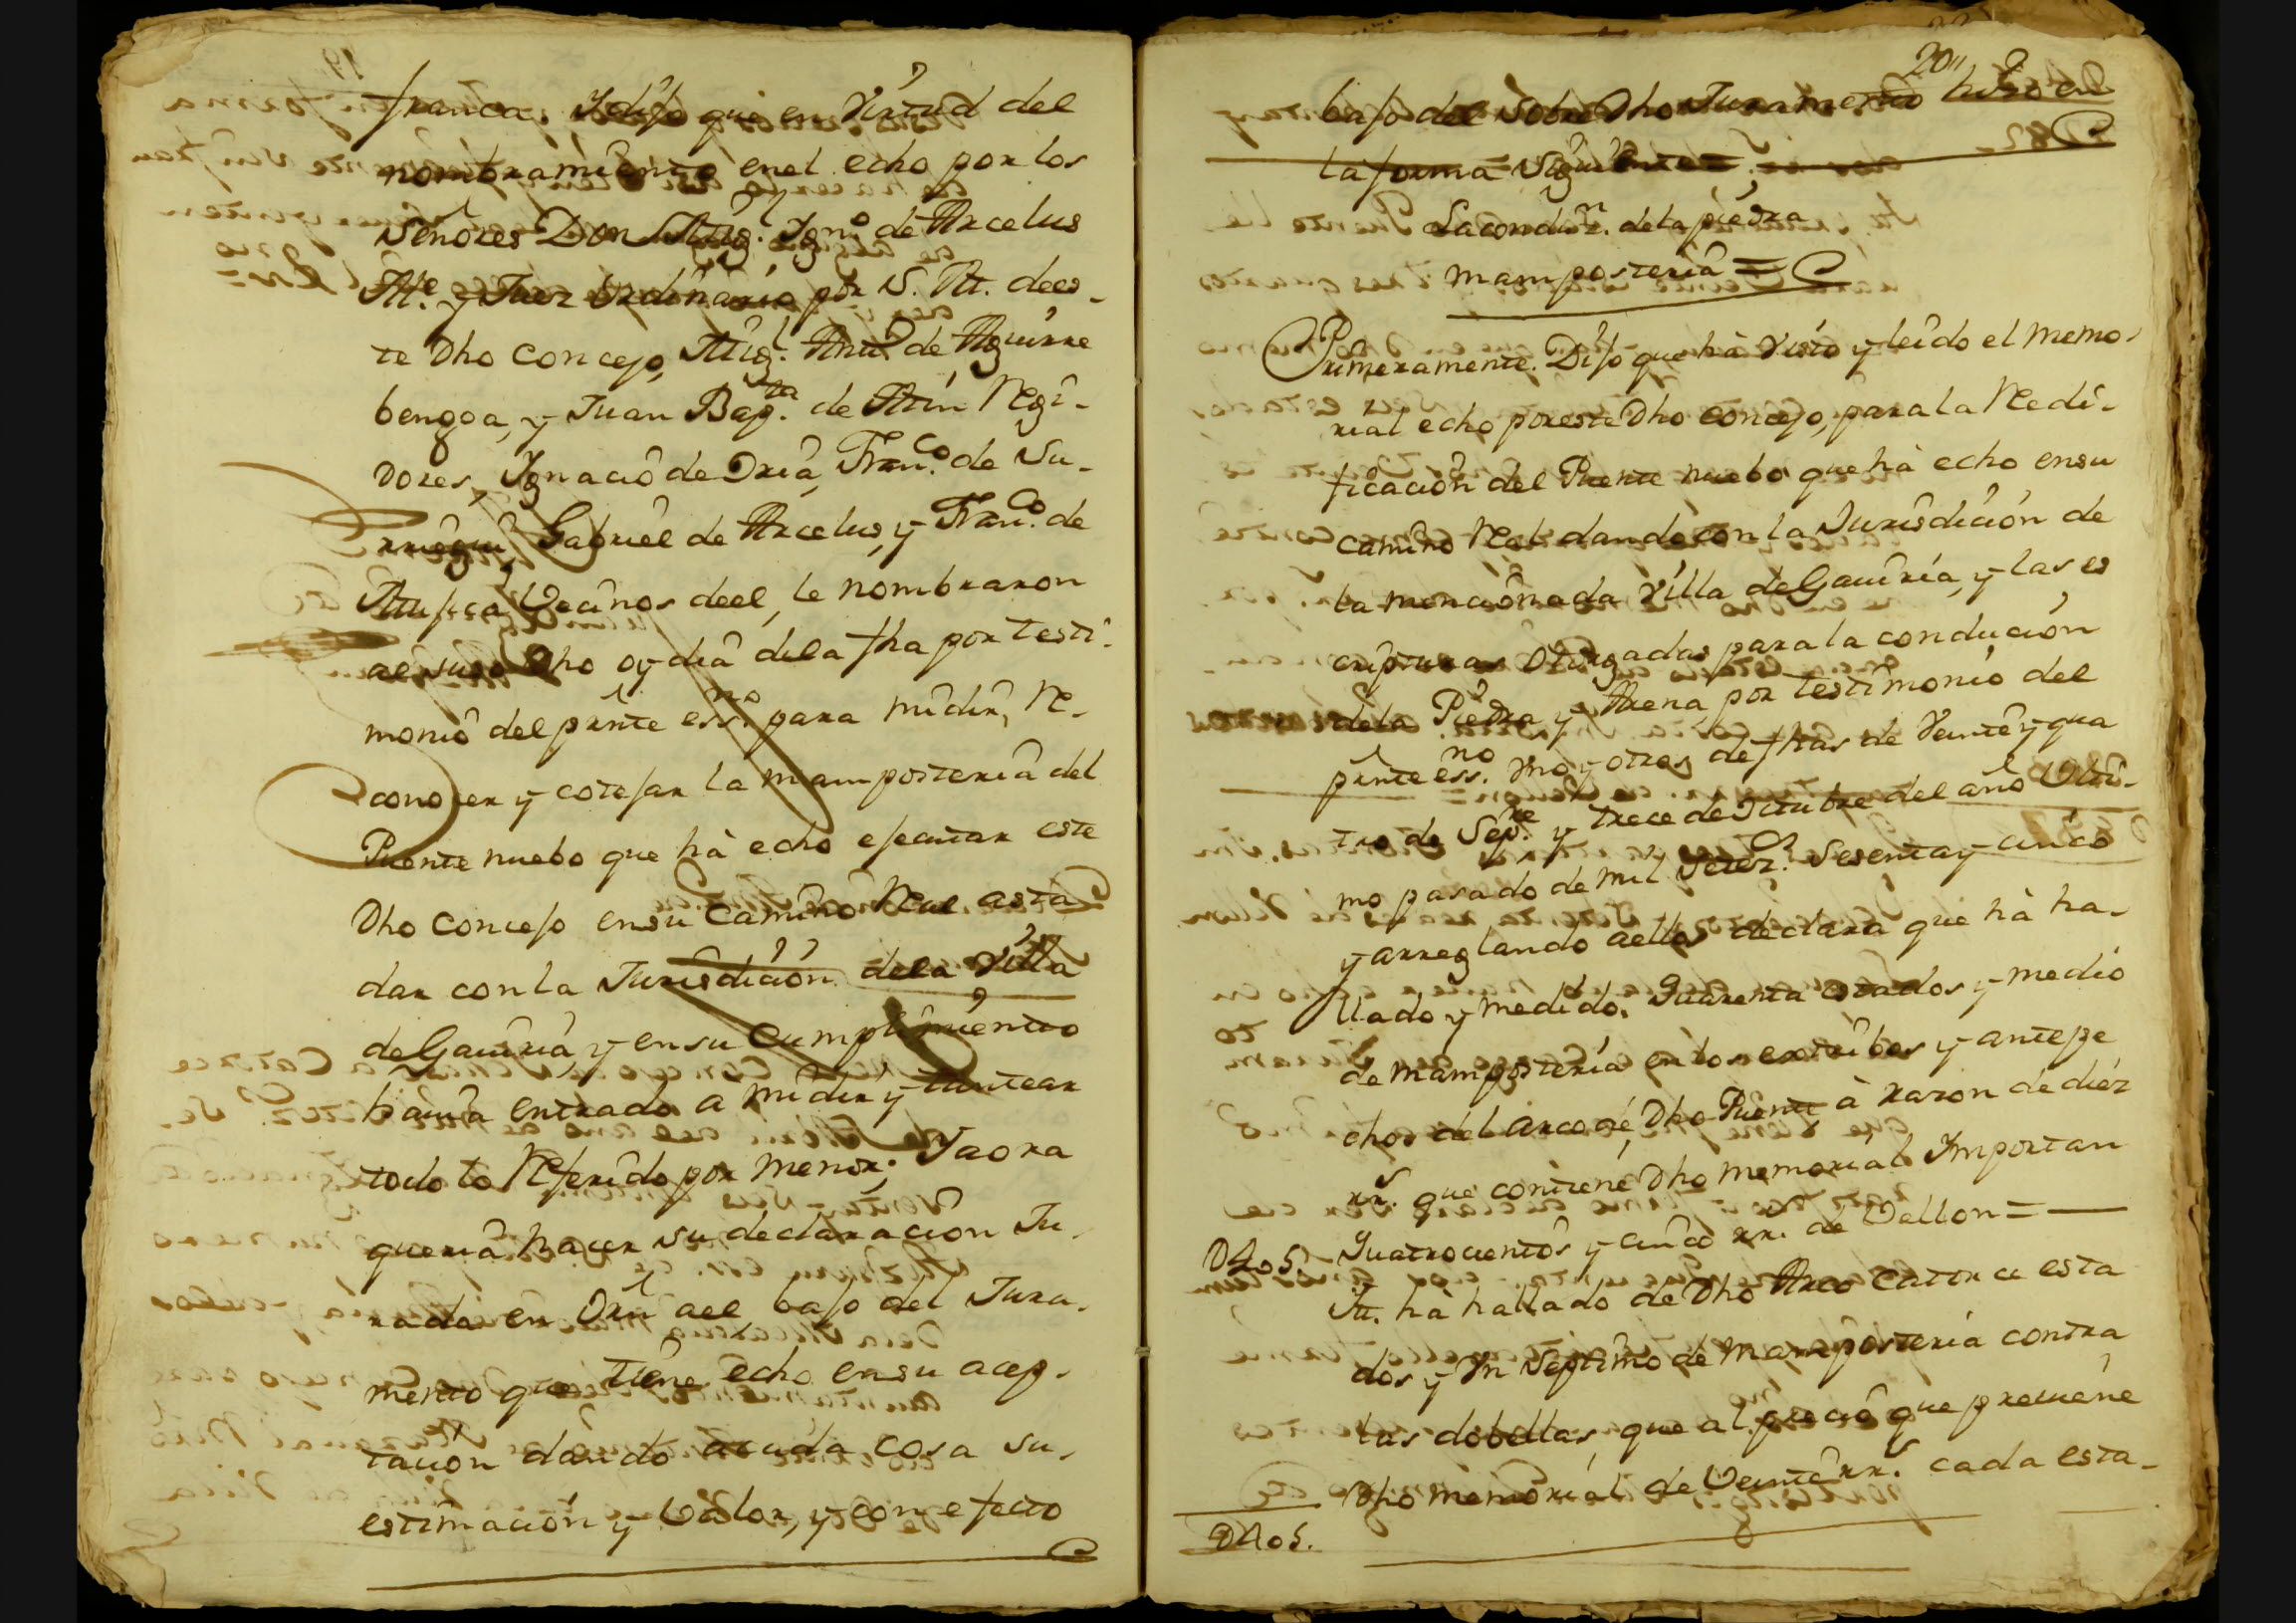 franca. Y dijo que en Virtud del
nombramiento enel echo por los
Señores Don Mig.l Ygn.o de Arcelus
Alc.e y Juez hordinario por S. M. dees-
te Dho concejo, Mig.l Ant.o de Aguirre
bengoa, y Juan Bap.ta de Atin Regi-
dores, Ygnacio de Oria, Fran.co de Su-
Gabriel de Arcelus, y Fran.co de
Mujica Vecinos deel, le nombraron
al suso Dho oy dia dela fha por testi-
monio del prnte ess.no para midir, Re-
conoser y cotejar la mamposteria del
Puente nuebo que hà echo ejecutar este
Dho concejo ensu Camino Real asta
dar con la Jurisdición dela Villa
de Gauiria, y ensu Cumplimiento
hauia entrado a midir y tantear
todo lo Referido por menor; Y aora
queria hacer su declaracion Ju-
rada en Orn ael, bajo del Jura-
mento que tiene echo ensu acep-
tación dando acada cosa su
estimación y Valor, y con efecto
20
bajo del sobre Dho Juramento hizo en
la forma Siguiente =
La condiz.n dela piedra
mamposteria =
Primeramente. Dijo que hà visto y leido el memo-
rial echo por este Dho concejo, para la Redi-
ficación del Puente nuebo que hà echo ensu
camino Real dando con la Jurisdición de
la mencionada Villa de Gauiria, y las es
cripturas Otorgadas para la condución
dela Piedra y Arena, por testimonio del
prnte ess.no mo y otros de fhas de Veinte y qua
tro de Sep.re y trece de Octubre del año Vlti-
mo pasado de mil Setez.s Sesenta y cinco
y arreglando aellas declara que hà ha-
llado y medido. Quarenta estados y medio
de mamposteria en los extribos y antepe
chos del arco de Dho Puente à razon de diéz
rr.s que contiene Dho memorial Ymportan
D405. Quatrocientos y cinco rr.s de Vellon =
Yt. hà hallado de Dho Arco catorce esta
dos y Vn septimo de mamposteria contra
las dobellas, que al precio que preuiene
Dho memorial de Veinte rr.s cada esta-
D405.